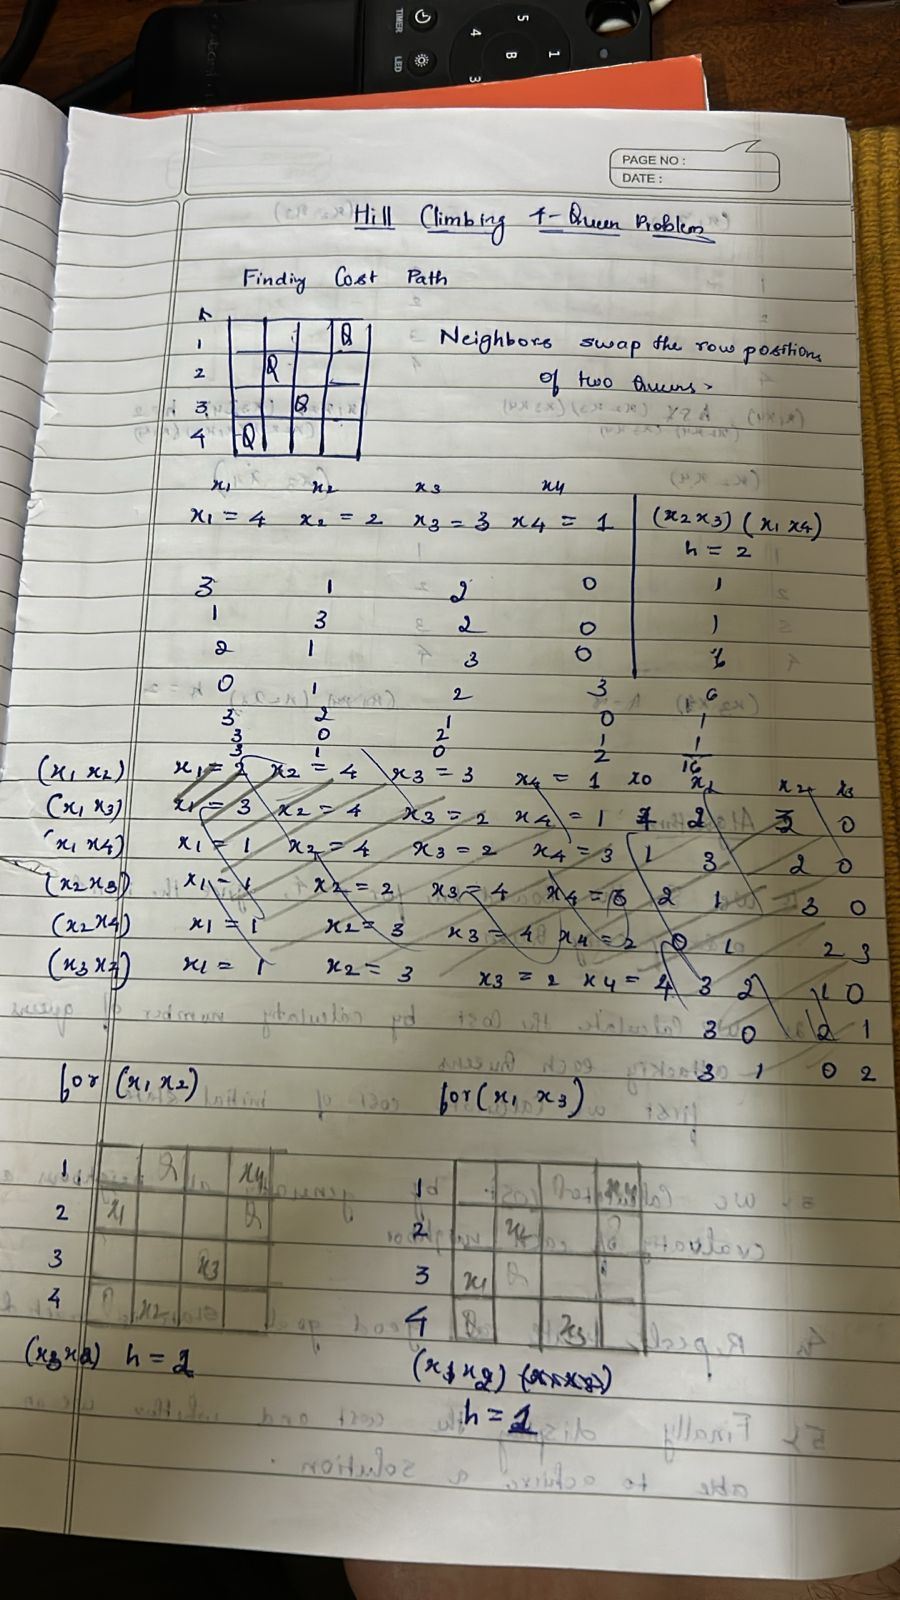 TIMER
LED
5
4
B
1
3
PAGE NO :
DATE :
Hill Climbing 4-Queen Problem
Finding Cost Path
1 Q
2 Q
3 Q
4 Q
Neighbors swap the row positions
of two Queens.
x1 x2 x3 x4
x1 = 4 x2 = 2 x3 = 3 x4 = 1 (x2 x3) (x1 x4)
h = 2
3 1 2 0 1
1 3 2 0 1
2 1 3 0
0 1 2 3 6
3 2 1 0 1
3 0 2 1 1
3 1 0 2 16
(x1 x2) x1 = 2 x2 = 4 x3 = 3 x4 = 1 x0 x1 x2 x3
(x1 x3) x1 = 3 x2 = 4 x3 = 2 x4 = 1 2 0
(x1 x4) x1 = 1 x2 = 4 x3 = 2 x4 = 3 1 3 2 0
(x2 x3) x1 = 1 x2 = 2 x3 = 4 x4 = 2 1 3 0
(x2 x4) x1 = 1 x2 = 3 x3 = 4 x4 = 2 0 1 2 3
x1 = 1 x2 = 3 x3 = 2 x4 = 4 3 2 1 0
3 0 2 1
3 1 0 2
for (x1 x2) for (x1 x3)
1 x4
2 x1
3 x3
4 x2
1 x4
2 x2
3 x1
4 x3
h =
(x1 x2)
h =